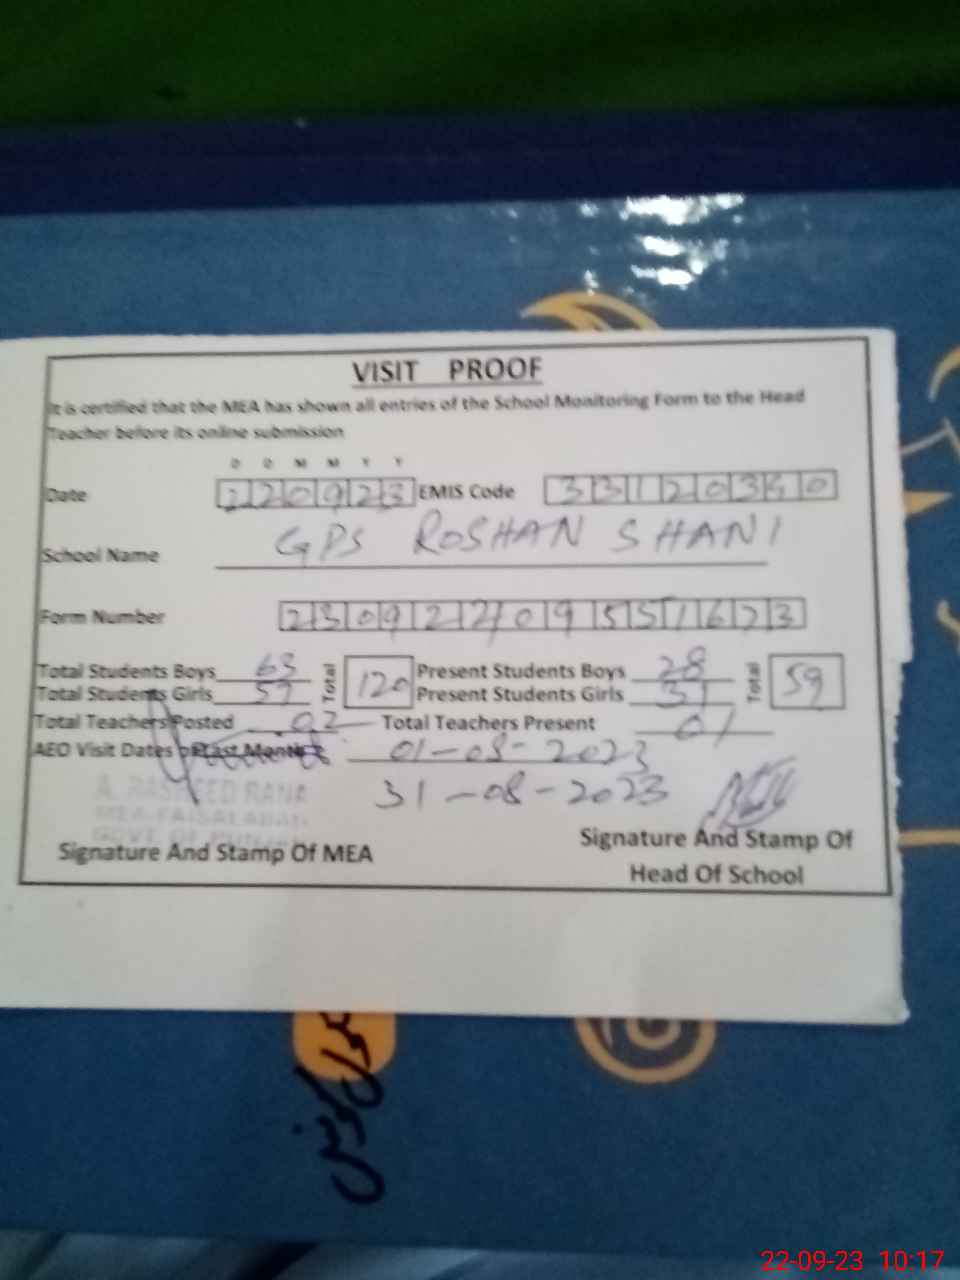 VISIT PROOF
It is certified that the MEA has shown all entries of the School Monitoring Form to the Head
Teacher before its online submission
D D M M Y Y
Date 220923 EMIS Code 33120340
School Name GPS ROSHAN SHANI
Form Number 23092209551673
Total Students Boys 63 Total 120 Present Students Boys 28 Total 59
Total Students Girls 57 Present Students Girls 31
Total Teachers Posted 02 Total Teachers Present 01
AEO Visit Dates of Last Month 01-08-2023
31-08-2023
A. RASHEED RANA
MEA-FAISALABAD
GOVT. OF PUNJAB
Signature And Stamp Of MEA
Signature And Stamp Of
Head Of School
22-09-23 10:17